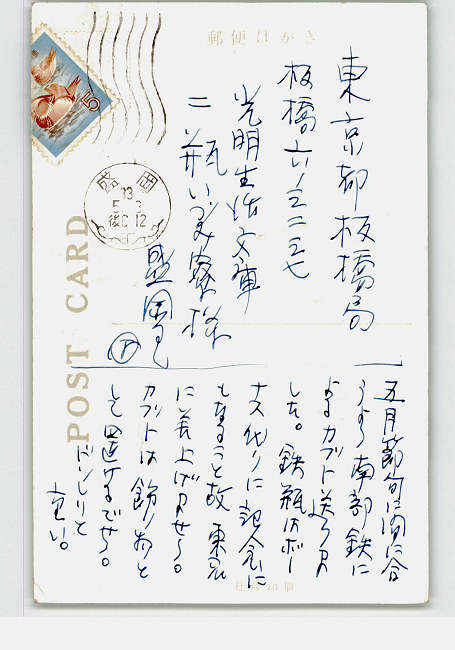 郵便はがき
東京都板橋局
板橋六ノ三二二七
光明生活文庫
二瓦
井いづみ寮様
盛岡
POST CARD
5
盛岡
33
5
後6-12
五月節句に間に合
うよう南部鉄に
よるカブト送りま
した。鉄瓶はボー
ナス代りに記念に
もなること故 東京
に差上げませう。
カブトは飾り物と
して置けるでせう。
ドッシリと
重い。